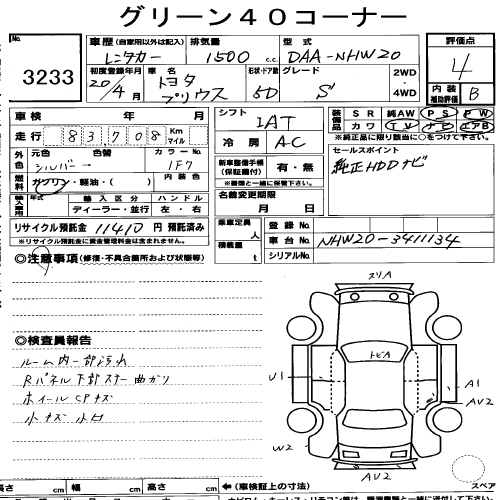 グリーン40コーナー
No. 3233
車歴 (自家用以外は記入) レンタカー
排気量 1500 c.c.
型式 DAA-NHW20
評価点 4
初度登録年月 20/4月
車名 トヨタ プリウス
形状・ドア数 5D
グレード S
2WD・4WD
内装補助評価 B
車検 年 月
走行 83708 Km マイル
シフト IAT
冷房 AC
装備品 SR 純AW PS PW
カワ TV ナビ エアB
※純正品に限り該当に○をつけて下さい。
外色 元色 シルバー→ 色替 カラーNo. 1F7
燃料 ガソリン・軽油・( ) 内装色
輸入車用 年式 輸入区分 ディーラー・並行 ハンドル 左・右
新車整備手帳(保証書付) 有・無
※書類と一緒に保管下さい。
名義変更期限 月 日
セールスポイント
純正HDDナビ
リサイクル預託金 11410 円 預託済み
※リサイクル預託金に資金管理料金は含まれません。
乗車定員 人
積載量 t
登録No.
車台No. NHW20-3411134
シリアルNo.
◎注意事項 (修復・不具合箇所および状態等)
◎検査員報告
ルーム内一部汚れ
Rパネル下部ステー曲がり
ホイールCPキズ
小キズ 小凹
スリA
トビA
U1
A1
AU2
W2
AU2
スペア
長さ cm 幅 cm 高さ cm
←(車検証上の寸法)